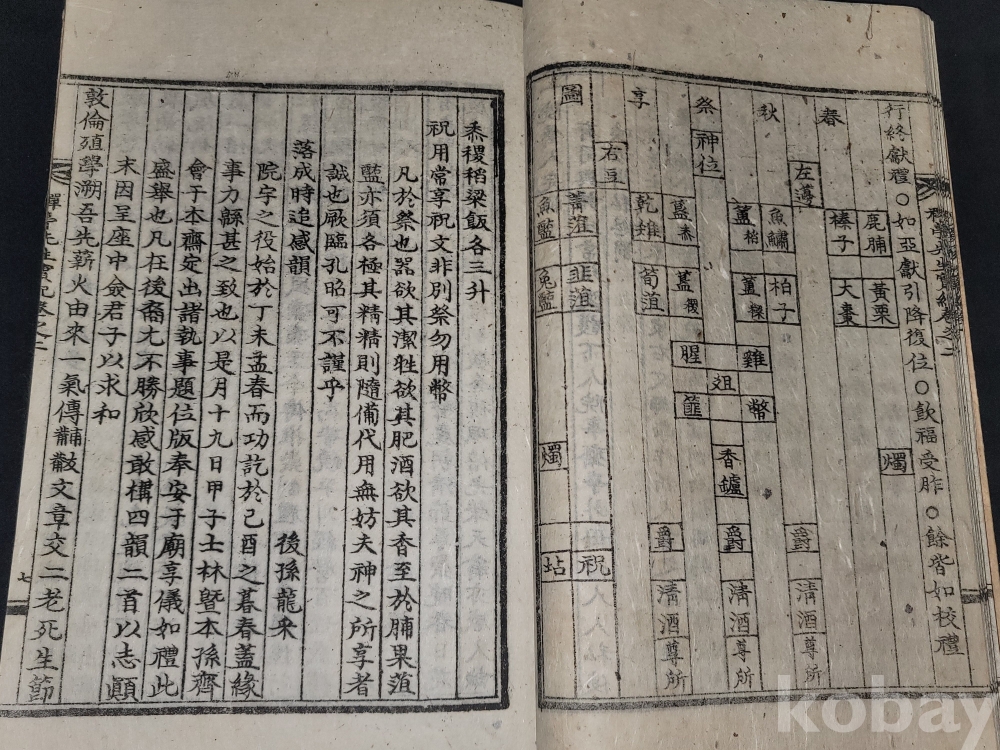 行終獻禮○如亞獻引降復位○飮福受胙○餘皆如校禮
春秋祭享圖
神位
左籩
右豆
鹿脯 黃栗
榛子 大棗
魚鱐 柏子
簠稻 簠稷
簋黍 簋稷
乾雉 筍菹
菁菹 韭菹
魚醢 兎醢
腥 雞
俎
幣
香爐
燭 燭
爵 爵 爵
祝 坫
清酒尊所 清酒尊所 清酒尊所
黍稷稻梁飯各三升
祝用常享祝文非別祭勿用幣
凡於祭也器欲其潔牲欲其肥酒欲其香至於脯果菹
醢亦須各極其精精則隨備代用無妨夫神之所享者
誠也厥臨孔昭可不謹乎
落成時追感韻
後孫龍采
院宇之役始於丁未孟春而功訖於己酉之暮春蓋緣
事力緜甚之致也以是月十九日甲子士林曁本孫齊
會于本齋定出諸執事題位版奉安于廟享儀如禮此
盛舉也凡在後裔尤不勝欣感敢構四韻二首以志顚
末因呈座中僉君子以求和
敦倫殖學溯吾先薪火由來一氣傳黼黻文章交二老死生節
七
kobay